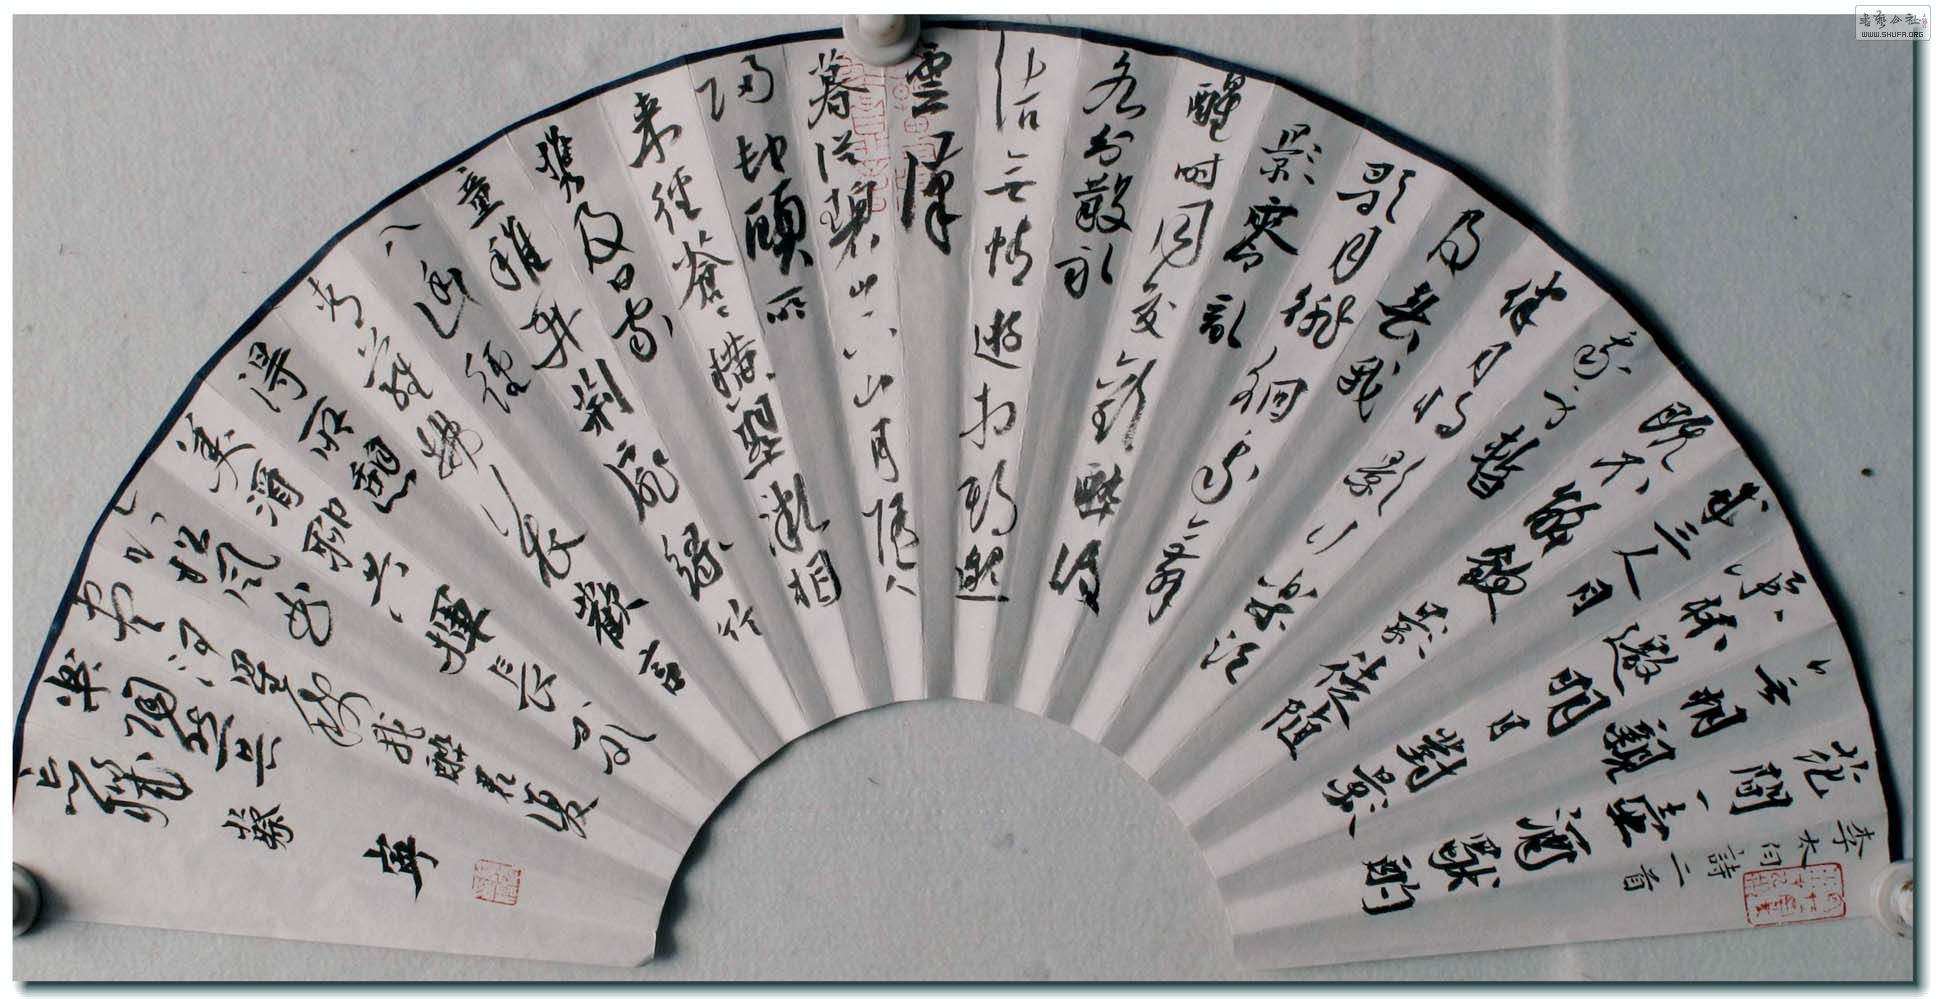 李太白詩二首
花間一壺酒獨酌
無相親
舉杯邀明月對影
成三人月
既不解飲影徒隨
我身暫
伴月將影行樂須
及春我
歌月徘徊我舞
影零亂
醒時同交歡醉後
各分散永
結無情遊相期邈
雲漢
暮從碧山下山月隨人
歸卻顧所
來徑蒼蒼橫翠微相
攜及田家
童稚開荊扉綠竹
入幽徑
青蘿拂行衣歡言
得所憩
美酒聊共揮長歌
吟松風曲
盡河星稀我醉君復
樂陶然共
忘機
書藝公社
WWW.SHUFA.ORG